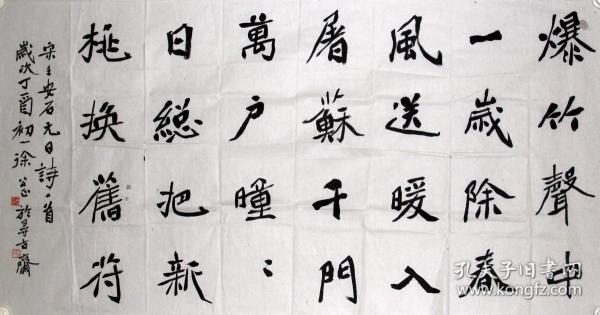 爆竹聲中
一歲除春
風送暖入
屠蘇千門
萬户曈〻
日總把新
桃换舊符
宋王安石元日詩一首
歲次丁酉初一徐
於尋古齋
孔夫子旧书网
www.kongfz.com